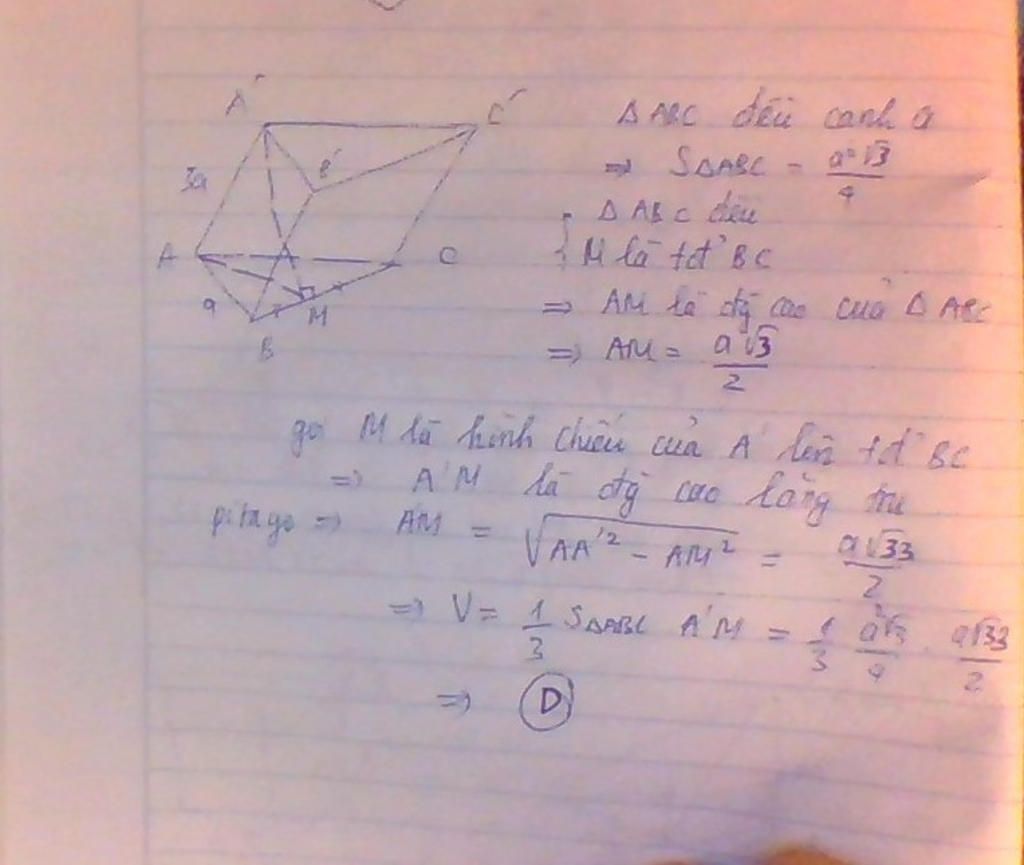 A'
C'
B'
3a
A
C
a
M
B
Δ ABC đều cạnh a
=> SΔABC = a²√3/4
Δ ABC đều
M là tđ BC
=> AM là đg cao của Δ ABC
=> AM = a√3/2
gọi M là hình chiếu của A' lên tđ BC
=> A'M là đg cao lăng trụ
pitago => A'M = √AA'² - AM² = a√33/2
=> V = 1/3 SΔABC A'M = 1/3 a²√3/4 . a√33/2
=> D